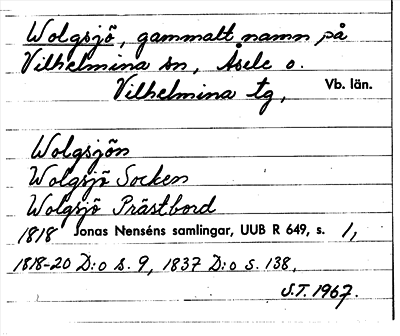 Wolgsjö, gammalt namn på
Vilhelmina sn, Åsele o.
Vilhelmina tg, Vb. län.
Wolgsjön
Wolgsjö Socken
Wolgsjö Prästbord
1818 Jonas Nenséns samlingar, UUB R 649, s. 1,
1818-20 D:o s. 9, 1837 D:o s. 138,
S.T. 1967.